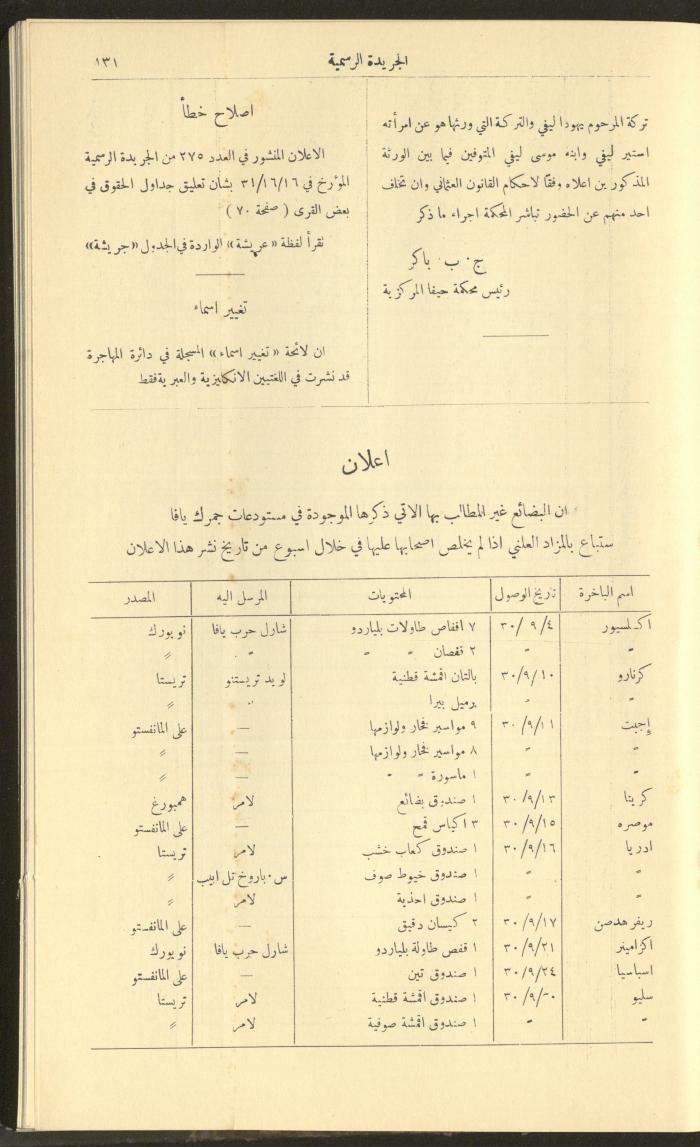 الجريدة الرسمية
١٣١
تركة المرحوم يهودا ليفي والتركة التي ورثها هو عن امرأته
استير ليفي وابنه موسى ليفي المتوفين فيما بين الورثة
المذكورين اعلاه وفقًا لاحكام القانون العثماني وان تخلف
احد منهم عن الحضور تباشر المحكمة اجراء ما ذكر
ج. ب. باكر
رئيس محكمة حيفا المركزية
اصلاح خطأ
الاعلان المنشور في العدد ٢٧٥ من الجريدة الرسمية
المؤرخ في ٣١/١٦/١٦ بشأن تعليق جداول الحقوق في
بعض القرى ( صفحة ٧٠ )
نقرأ لفظة «عريشة» الواردة في الجدول «جريشة»
تغيير اسماء
ان لائحة « تغيير اسماء » المسجلة في دائرة المهاجرة
قد نشرت في اللغتين الانكليزية والعبرية فقط
اعلان
ان البضائع غير المطالب بها الاتي ذكرها الموجودة في مستودعات جمرك يافا
ستباع بالمزاد العلني اذا لم يخلص اصحابها عليها في خلال اسبوع من تاريخ نشر هذا الاعلان
اسم الباخرة تاريخ الوصول المحتويات المرسل اليه المصدر
اكسلسيور ٣٠/٩/٤ ٧ اقفاص طاولات بلياردو شارل حرب يافا نويورك
״ ״ ٢ قفصان ״ ״ ״ ״
كرنارو ٣٠/٩/١٠ بالتان اقمشة قطنية لويد تريستنو تريستا
״ ״ برميل بيرا ״ ״
إجبت ٣٠/٩/١١ ٩ مواسير فخار ولوازمها — على المانفستو
״ ״ ٨ مواسير فخار ولوازمها — ״
״ ״ ١ ماسورة ״ ״ — ״
كريتا ٣٠/٩/١٣ ١ صندوق بضائع لامر همبورغ
موصره ٣٠/٩/١٥ ٣ اكياس قمح — على المانفستو
ادريا ٣٠/٩/١٦ ١ صندوق كعاب خشب لامر تريستا
״ ״ ١ صندوق خيوط صوف س. باروخ تل ابيب ״
״ ״ ١ صندوق احذية لامر ״
ريفر هدصن ٣٠/٩/١٧ ٢ كيسان دقيق — على المانفستو
اكزامينر ٣٠/٩/٢١ ١ قفص طاولة بلياردو شارل حرب يافا نويورك
اسباسيا ٣٠/٩/٢٤ ١ صندوق تين — على المانفستو
سليو ٣٠/٩/ ١ صندوق اقمشة قطنية لامر تريستا
״ ״ ١ صندوق اقمشة صوفية لامر ״